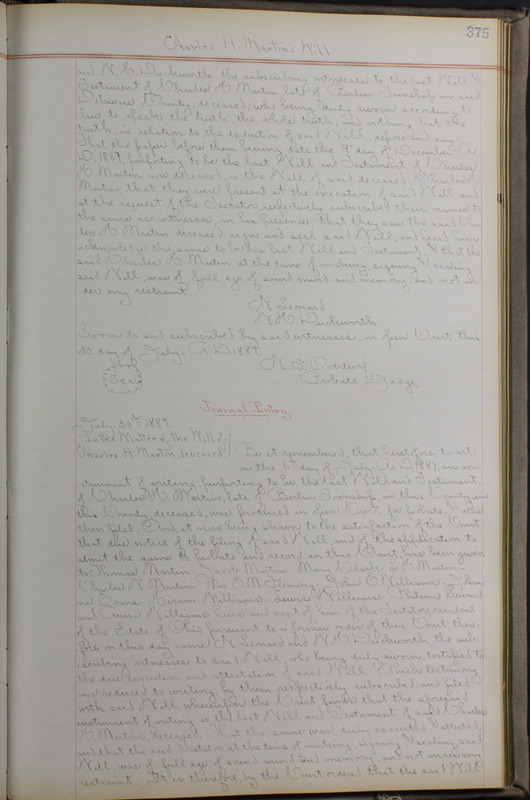 375
Charles H. Martin's Will
and N. H. Duckworth the subscribing witnesses to the last Will &
Testament of Charles H. Martin late of Berlin Township in said
Delaware County, deceased, who being duly sworn according to
law to speak the truth, the whole truth, and nothing but the
truth in relation to the execution of said Will, depose and say
That the paper before them bearing date the 9" day of December A.
D. 1887, purporting to be the last Will and Testament of Charles
H. Martin now deceased, is the Will of said deceased, Charles H.
Martin, that they were present at the execution of said Will, and
at the request of the Testator, respectively subscribed their names to
the same as witnesses, in his presence, that they saw the said Char
les H. Martin, deceased sign and seal said Will, and heard him
acknowledge the same to be his last Will and Testament & that the
said Charles H. Martin at the time of making, signing & sealing
said Will, was of full age of sound mind and memory, and not un-
der any restraint.
Leonard
N. H. Duckworth.
Sworn to and subscribed by said witnesses, in open Court, this
30 day of July. A. D. 1889.
Overturf,
Seal
Probate Judge
Journal Entry
July 30th 1889
In the Matter of the Will of
Charles H. Martin deceased Be it remembered, that heretofore, to wit:
on the day of July. A.D. 1889, an in
strument of writing purporting to be the last Will and Testament
of Charles H. Martin, late of Berlin Township, in this County, in
this County, deceased, was produced in open Court for probate, & was
then filed. And, it now being shown to the satisfaction of the Court
that due notice of the filing of said Will, and of the application to
admit the same to probate and record in this Court has been given
to Thomas Martin, Jacob Martin, Mary Martin
Charles Martin, Mrs. Fleming, John Williams,
Hiram Williams, Williams,
and Anna Williams, heirs and next of kin of the Testator, resident
of the State of Ohio, pursuant to a former order of this Court: there-
fore on this day came Leonard and N. H. Duckworth the sub-
scribing witnesses to said Will, who being duly sworn, testified to
the due execution and attestation of said Will. Which testimony
was reduced to writing, by them respectively subscribed, and filed
with said Will, whereupon the Court finds that the aforesaid
instrument of writing is the last Will and Testament of said Charles
H. Martin, deceased. That the same was duly executed & attested,
and that the said Testator at the time of making signing & sealing said
Will, was of full age of sound mind and memory, and not under any
restraint. It is, therefore, by the Court ordered, that the said Will